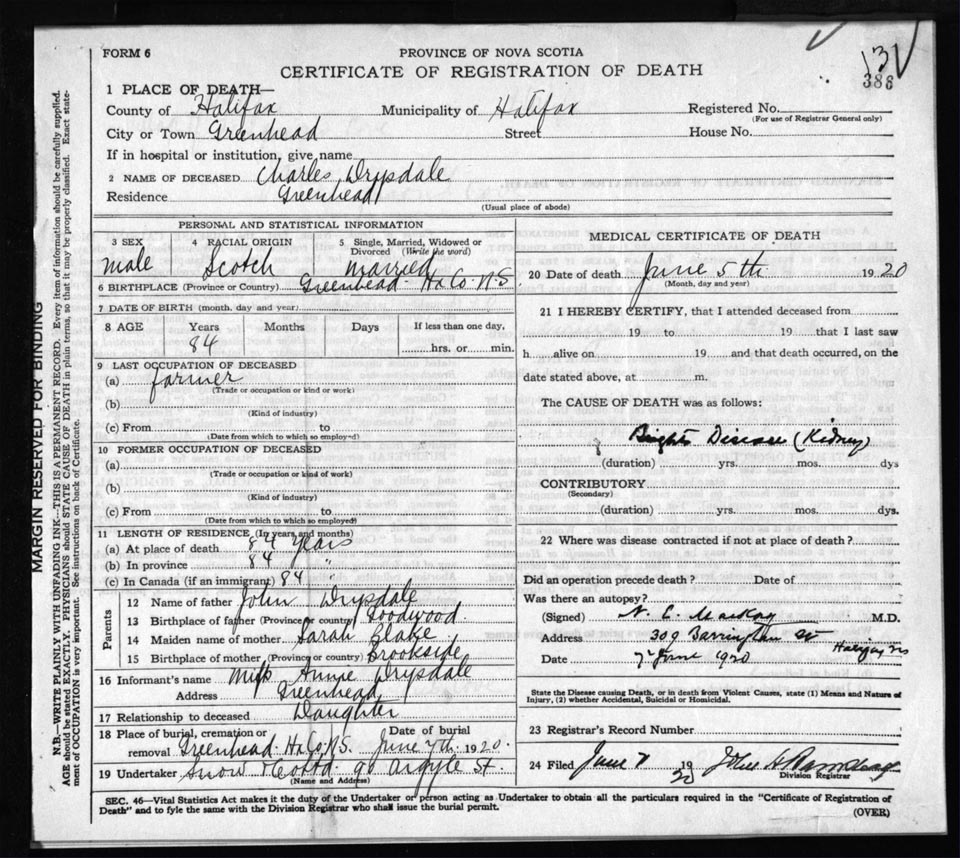 FORM 6
PROVINCE OF NOVA SCOTIA
CERTIFICATE OF REGISTRATION OF DEATH
131
386
1 PLACE OF DEATH—
County of Halifax Municipality of Halifax Registered No.
(For use of Registrar General only)
City or Town Greenhead Street House No.
If in hospital or institution, give name
2 NAME OF DECEASED Charles Drysdale
Residence Greenhead
(Usual place of abode)
PERSONAL AND STATISTICAL INFORMATION
3 SEX 4 RACIAL ORIGIN 5 Single, Married, Widowed or Divorced (Write the word)
male Scotch married
6 BIRTHPLACE (Province or Country) Greenhead Hx Co. N S
7 DATE OF BIRTH (month, day and year)
8 AGE Years Months Days If less than one day,
84 hrs. or min.
9 LAST OCCUPATION OF DECEASED
(a) farmer
(Trade or occupation or kind or work)
(b)
(Kind of industry)
(c) From to
(Date from which to which so employed)
10 FORMER OCCUPATION OF DECEASED
(a)
(Trade or occupation or kind of work)
(b)
(Kind of industry)
(c) From to
(Date from which to which so employed)
11 LENGTH OF RESIDENCE (In years and months)
(a) At place of death 84 years
(b) In province 84 "
(c) In Canada (if an immigrant) 84 "
Parents
12 Name of father John Drysdale
13 Birthplace of father (Province or country) Goodwood
14 Maiden name of mother Sarah Blake
15 Birthplace of mother (Province or country) Brookside
16 Informant's name Miss Annie Drysdale
Address Greenhead
17 Relationship to deceased Daughter
18 Place of burial, cremation or removal Greenhead Hx Co. N.S. Date of burial June 7th 1920.
19 Undertaker Snow & Co Ltd. 90 Argyle St.
(Name and Address)
MEDICAL CERTIFICATE OF DEATH
20 Date of death June 5th 1920
(Month, day and year)
21 I HEREBY CERTIFY, that I attended deceased from
19 to 19 that I last saw
h alive on 19 and that death occurred, on the
date stated above, at m.
The CAUSE OF DEATH was as follows:
Brights Disease (Kidney)
(duration) yrs. mos. dys
CONTRIBUTORY
(Secondary)
(duration) yrs. mos. dys.
22 Where was disease contracted if not at place of death?
Did an operation precede death? Date of
Was there an autopsy?
(Signed) N. E. MacKay M.D.
Address 309 Barrington St
Halifax NS
Date 7 June 1920
State the Disease causing Death, or in death from Violent Causes, state (1) Means and Nature of
Injury, (2) whether Accidental, Suicidal or Homicidal.
23 Registrar's Record Number
24 Filed June 7 1920
Division Registrar
SEC. 46—Vital Statistics Act makes it the duty of the Undertaker or person acting as Undertaker to obtain all the particulars required in the "Certificate of Registration of
Death" and to fyle the same with the Division Registrar who shall issue the burial permit.
(OVER)
MARGIN RESERVED FOR BINDING
N.B.—WRITE PLAINLY WITH UNFADING INK—THIS IS A PERMANENT RECORD. Every item of information should be carefully supplied.
AGE should be stated EXACTLY. PHYSICIANS should STATE CAUSE OF DEATH in plain terms, so that it may be properly classified. Exact state-
ment of OCCUPATION is very important. See instructions on back of Certificate.